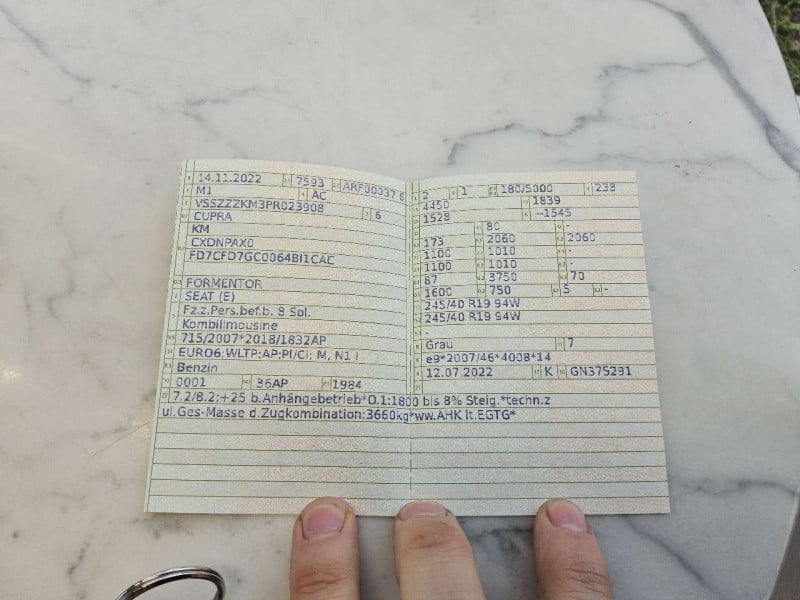 14.11.2022 7593 ARF00037 6
M1 AC
VSSZZZKM3PR023908 6
CUPRA
KM
CXDNPAX0
FD7CFD7GC0064BI1CAC
FORMENTOR
SEAT (E)
Fz.z.Pers.bef.b. 8 Spl.
Kombilimousine
715/2007*2018/1832AP
EURO6;WLTP;AP;PI/CI; M, N1 I
Benzin
0001 36AP 1984
2 1 180/5000 238
4450 1839
1528 --1545
80 -
173 2060 2060
1100 1010 -
1100 1010 -
87 3750 70
1600 750 5 -
245/40 R19 94W
245/40 R19 94W
-
Grau 7
e9*2007/46*4008*14
12.07.2022 K GN375291
7.2/8.2:+25 b.Anhängebetrieb*O.1:1800 bis 8% Steig.*techn.z
ul.Ges-Masse d.Zugkombination:3660kg*ww.AHK lt.EGTG*